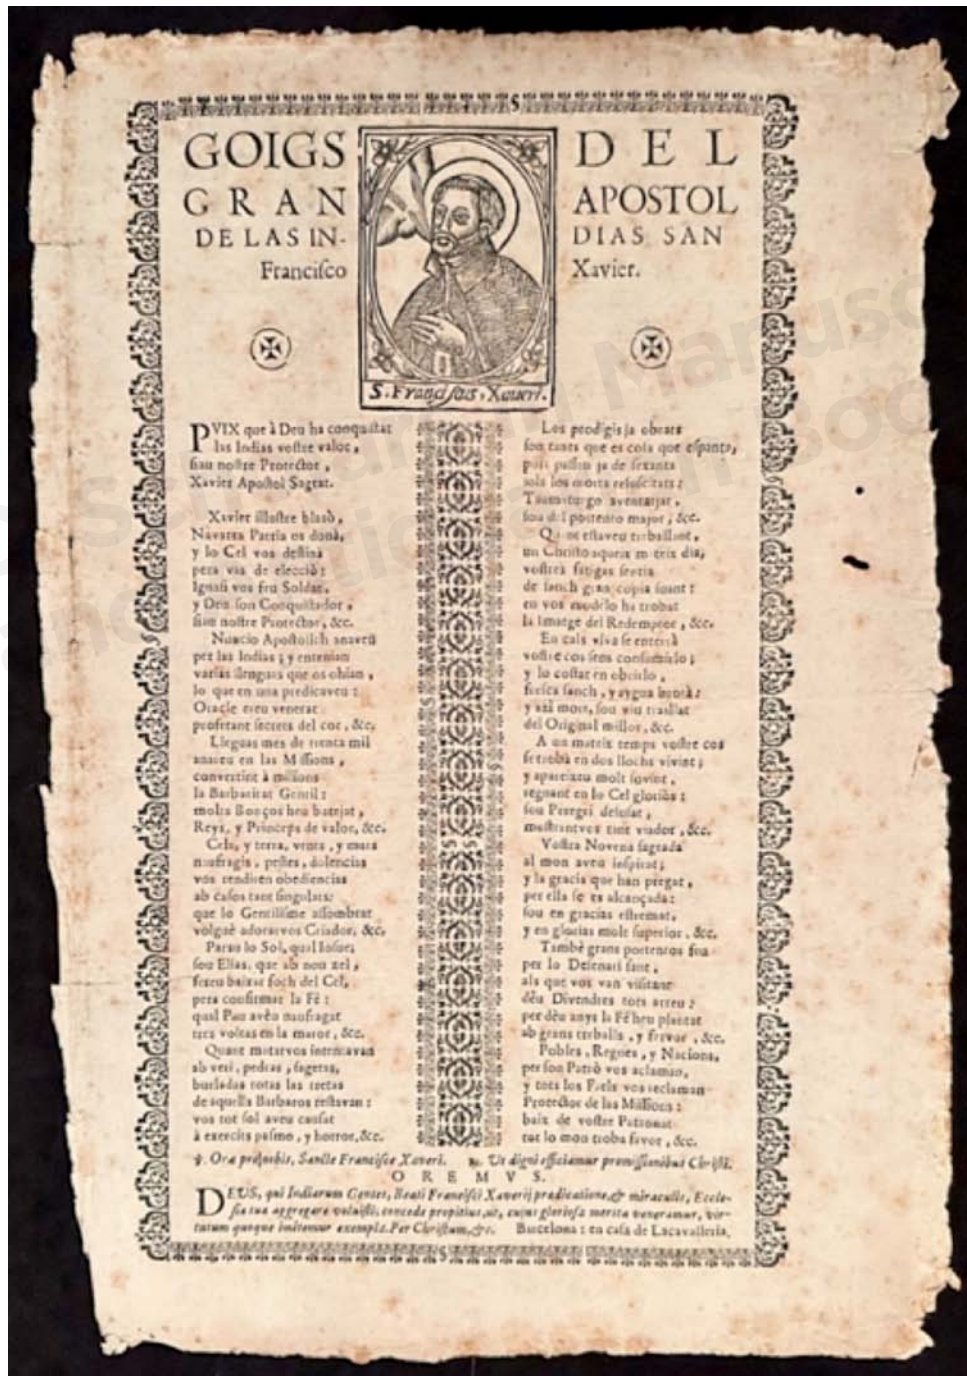 GOIGS DEL
GRAN APOSTOL
DE LAS IN- DIAS SAN
Francisco Xavier.
S. Franciscus, Xaveri.
PVIX que à Deu ha conquistat
las Indias vostre valor,
siau nostre Protector,
Xavier Apostol Sagrat.
Xavier illustre blasò,
Navarra Patria os donà,
y lo Cel vos destinà
pera vas de elecciò:
Ignasi vos feu Soldat,
y Deu son Conquistador,
siau nostre Protector, &c.
Nuncio Apostolich anaveu
per las Indias; y entenian
varias llenguas que os ohian,
lo que en una predicaveu:
Oracle ereu venerat
proferint secrets del cor, &c.
Lleguas mes de trenta mil
anareu en las Missions,
convertint à milions
la Barbaritat Gentil:
molts Bonços heu batejat,
Reys, y Princeps de valor, &c.
Cels, y terra, vents, y mars
naufragis, pestes, dolencias
vos rendiren obediencias
ab casos tant singulars:
que lo Gentilisme assombrat
volguè adorarvos Criador, &c.
Parau lo Sol, qual Iosue;
sou Elias, que ab nou zel,
fereu baixar foch del Cel,
pera confirmar la Fè:
qual Pau avèu naufragat
tres voltas en la maror, &c.
Quant matarvos intentavan
ab veri, pedras, sagetas,
burladas totas las tretas
de aquells Barbaros restavan:
vos tot sol aveu causat
à exercits pasmo, y horror, &c.
Los prodigis ja obrats
son tants que es cosa que espanta,
puix passan ja de sexanta
sols los morts resuscitats:
Taumaturgo aventatjat,
sou del portento major, &c.
Quant estaveu treballant,
un Christo aqueix mateix dia,
vostras fatigas sentia
de sanch gran copia suant:
en vos modelo ha trobat
la Imatge del Redemptor, &c.
En cals viva se enterrà
vostre cos sens consumirlo;
y lo costat en obrirlo,
fresca sanch, y aygua brotà:
y axi mort, sou viu trasllat
del Original millor, &c.
A un mateix temps vostre cos
se trobà en dos llochs vivint;
y apareixeu molt sovint,
regnant en lo Cel gloriòs:
sou Peregrì desusat,
mostrantvos tant viador, &c.
Vostra Novena sagrada
al mon aveu inspirat;
y la gracia que han pregat,
per ella se es alcançada:
sou en gracias estremat,
y en glorias molt superior, &c.
Tambè grans portentos feu
per lo Desenari sant,
als que vos van visitant
dèu Divendres tots arreu:
per dèu anys la Fè heu plantat
ab grans treballs, y fervor, &c.
Pobles, Regnes, y Nacions,
per son Patrò vos aclaman,
y tots los Fiels vos reclaman
Protector de las Missions:
baix de vostre Patronat
tot lo mon troba favor, &c.
℣. Ora pro nobis, Sancte Francisce Xaveri. ℟. Ut digni efficiamur promissionibus Christi.
OREMVS.
DEUS, qui Indiarum Gentes, Beati Francisci Xaverij prædicatione, & miraculis, Eccle-
siæ tuæ aggregare voluisti: concede propitius, ut, cujus gloriosa merita veneramur, vir-
tutum quoque imitemur exempla. Per Christum, &c. Barcelona: en casa de Lacavalleria.